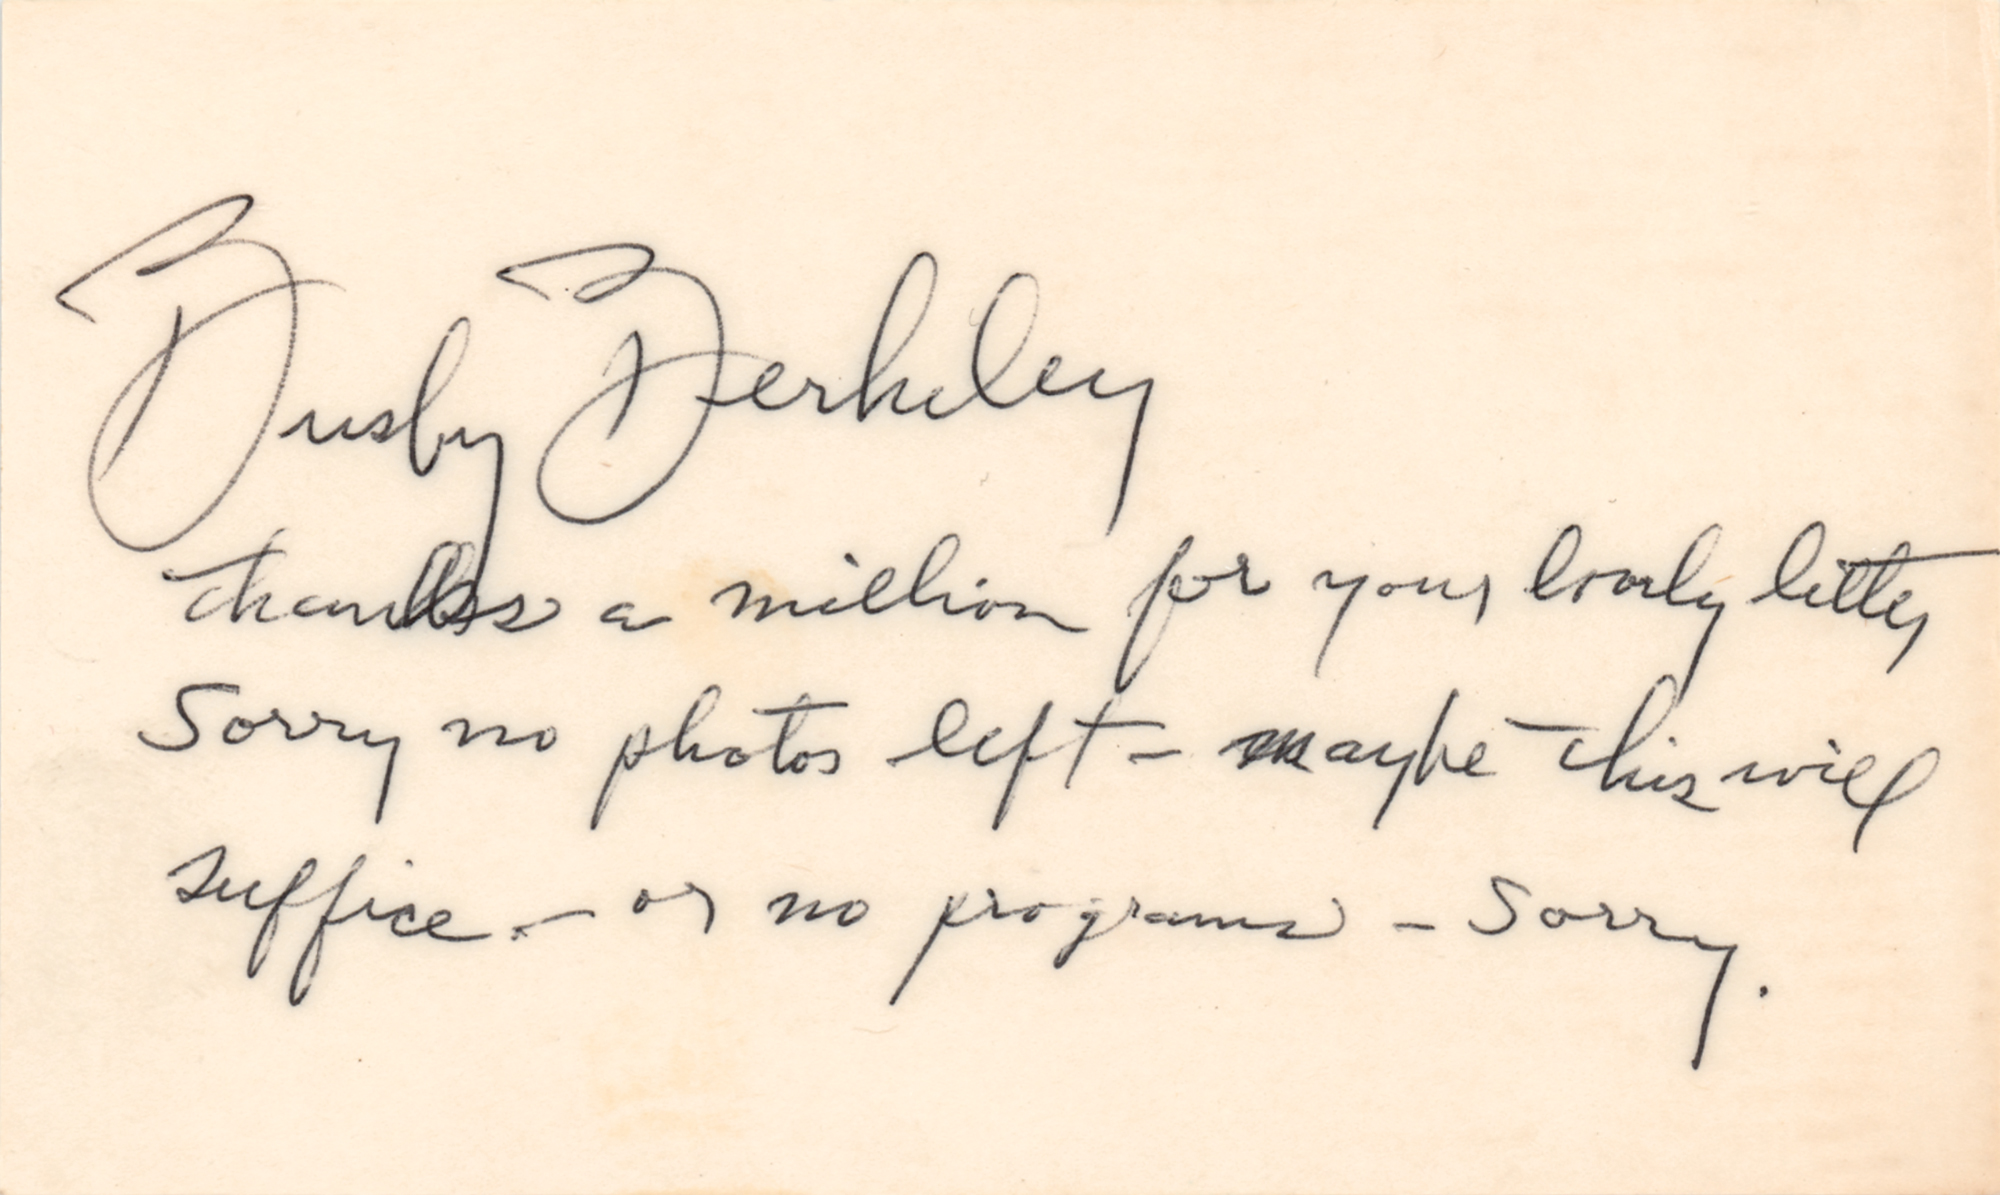 Busby Berkeley
thanks a million for your lovely letter
Sorry no photos left - maybe this will
suffice. - or no programs - Sorry.